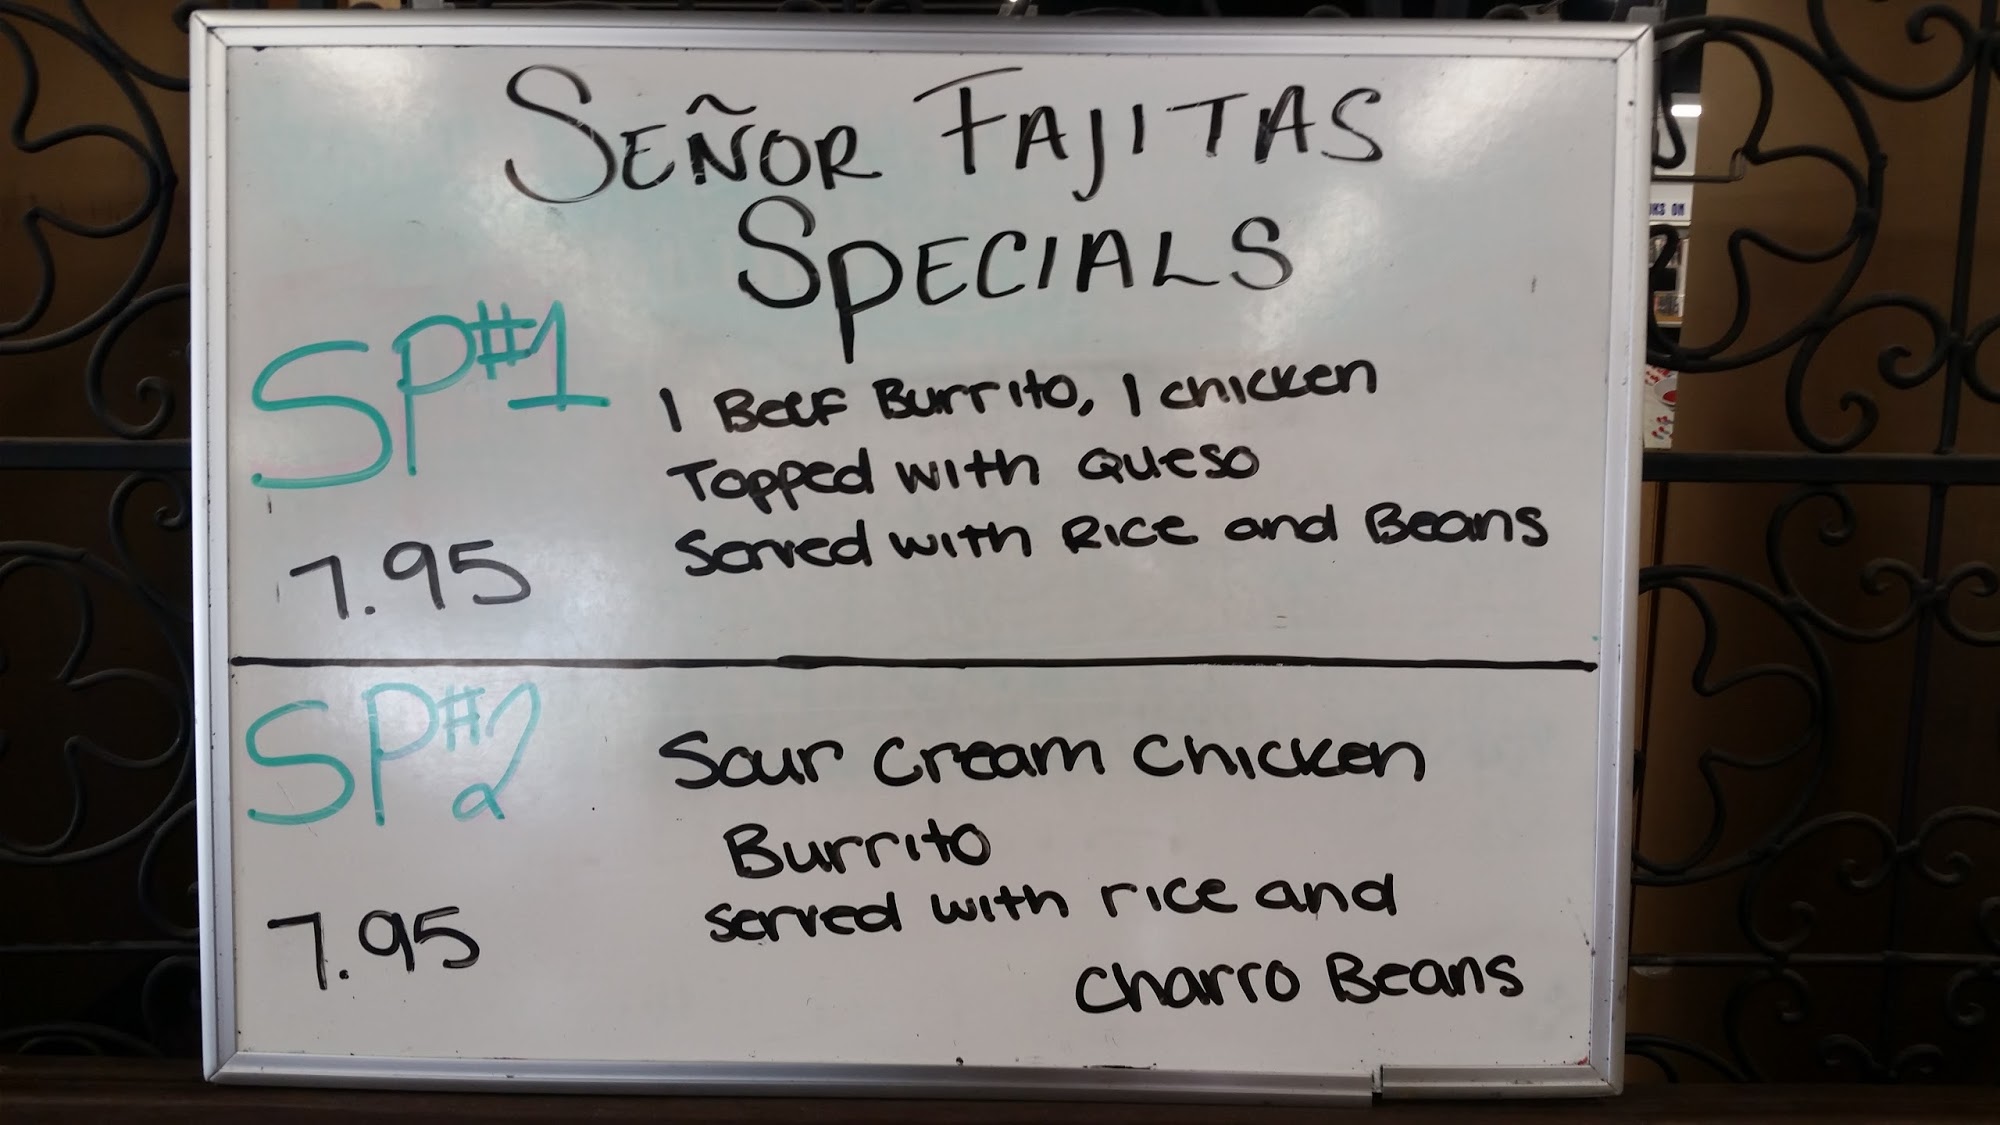 SEÑOR FAJITAS
SPECIALS
SP#1
1 Beef Burrito, 1 chicken
Topped with Queso
Served with Rice and Beans
7.95
SP#2
Sour Cream Chicken
Burrito
served with rice and
Charro Beans
7.95